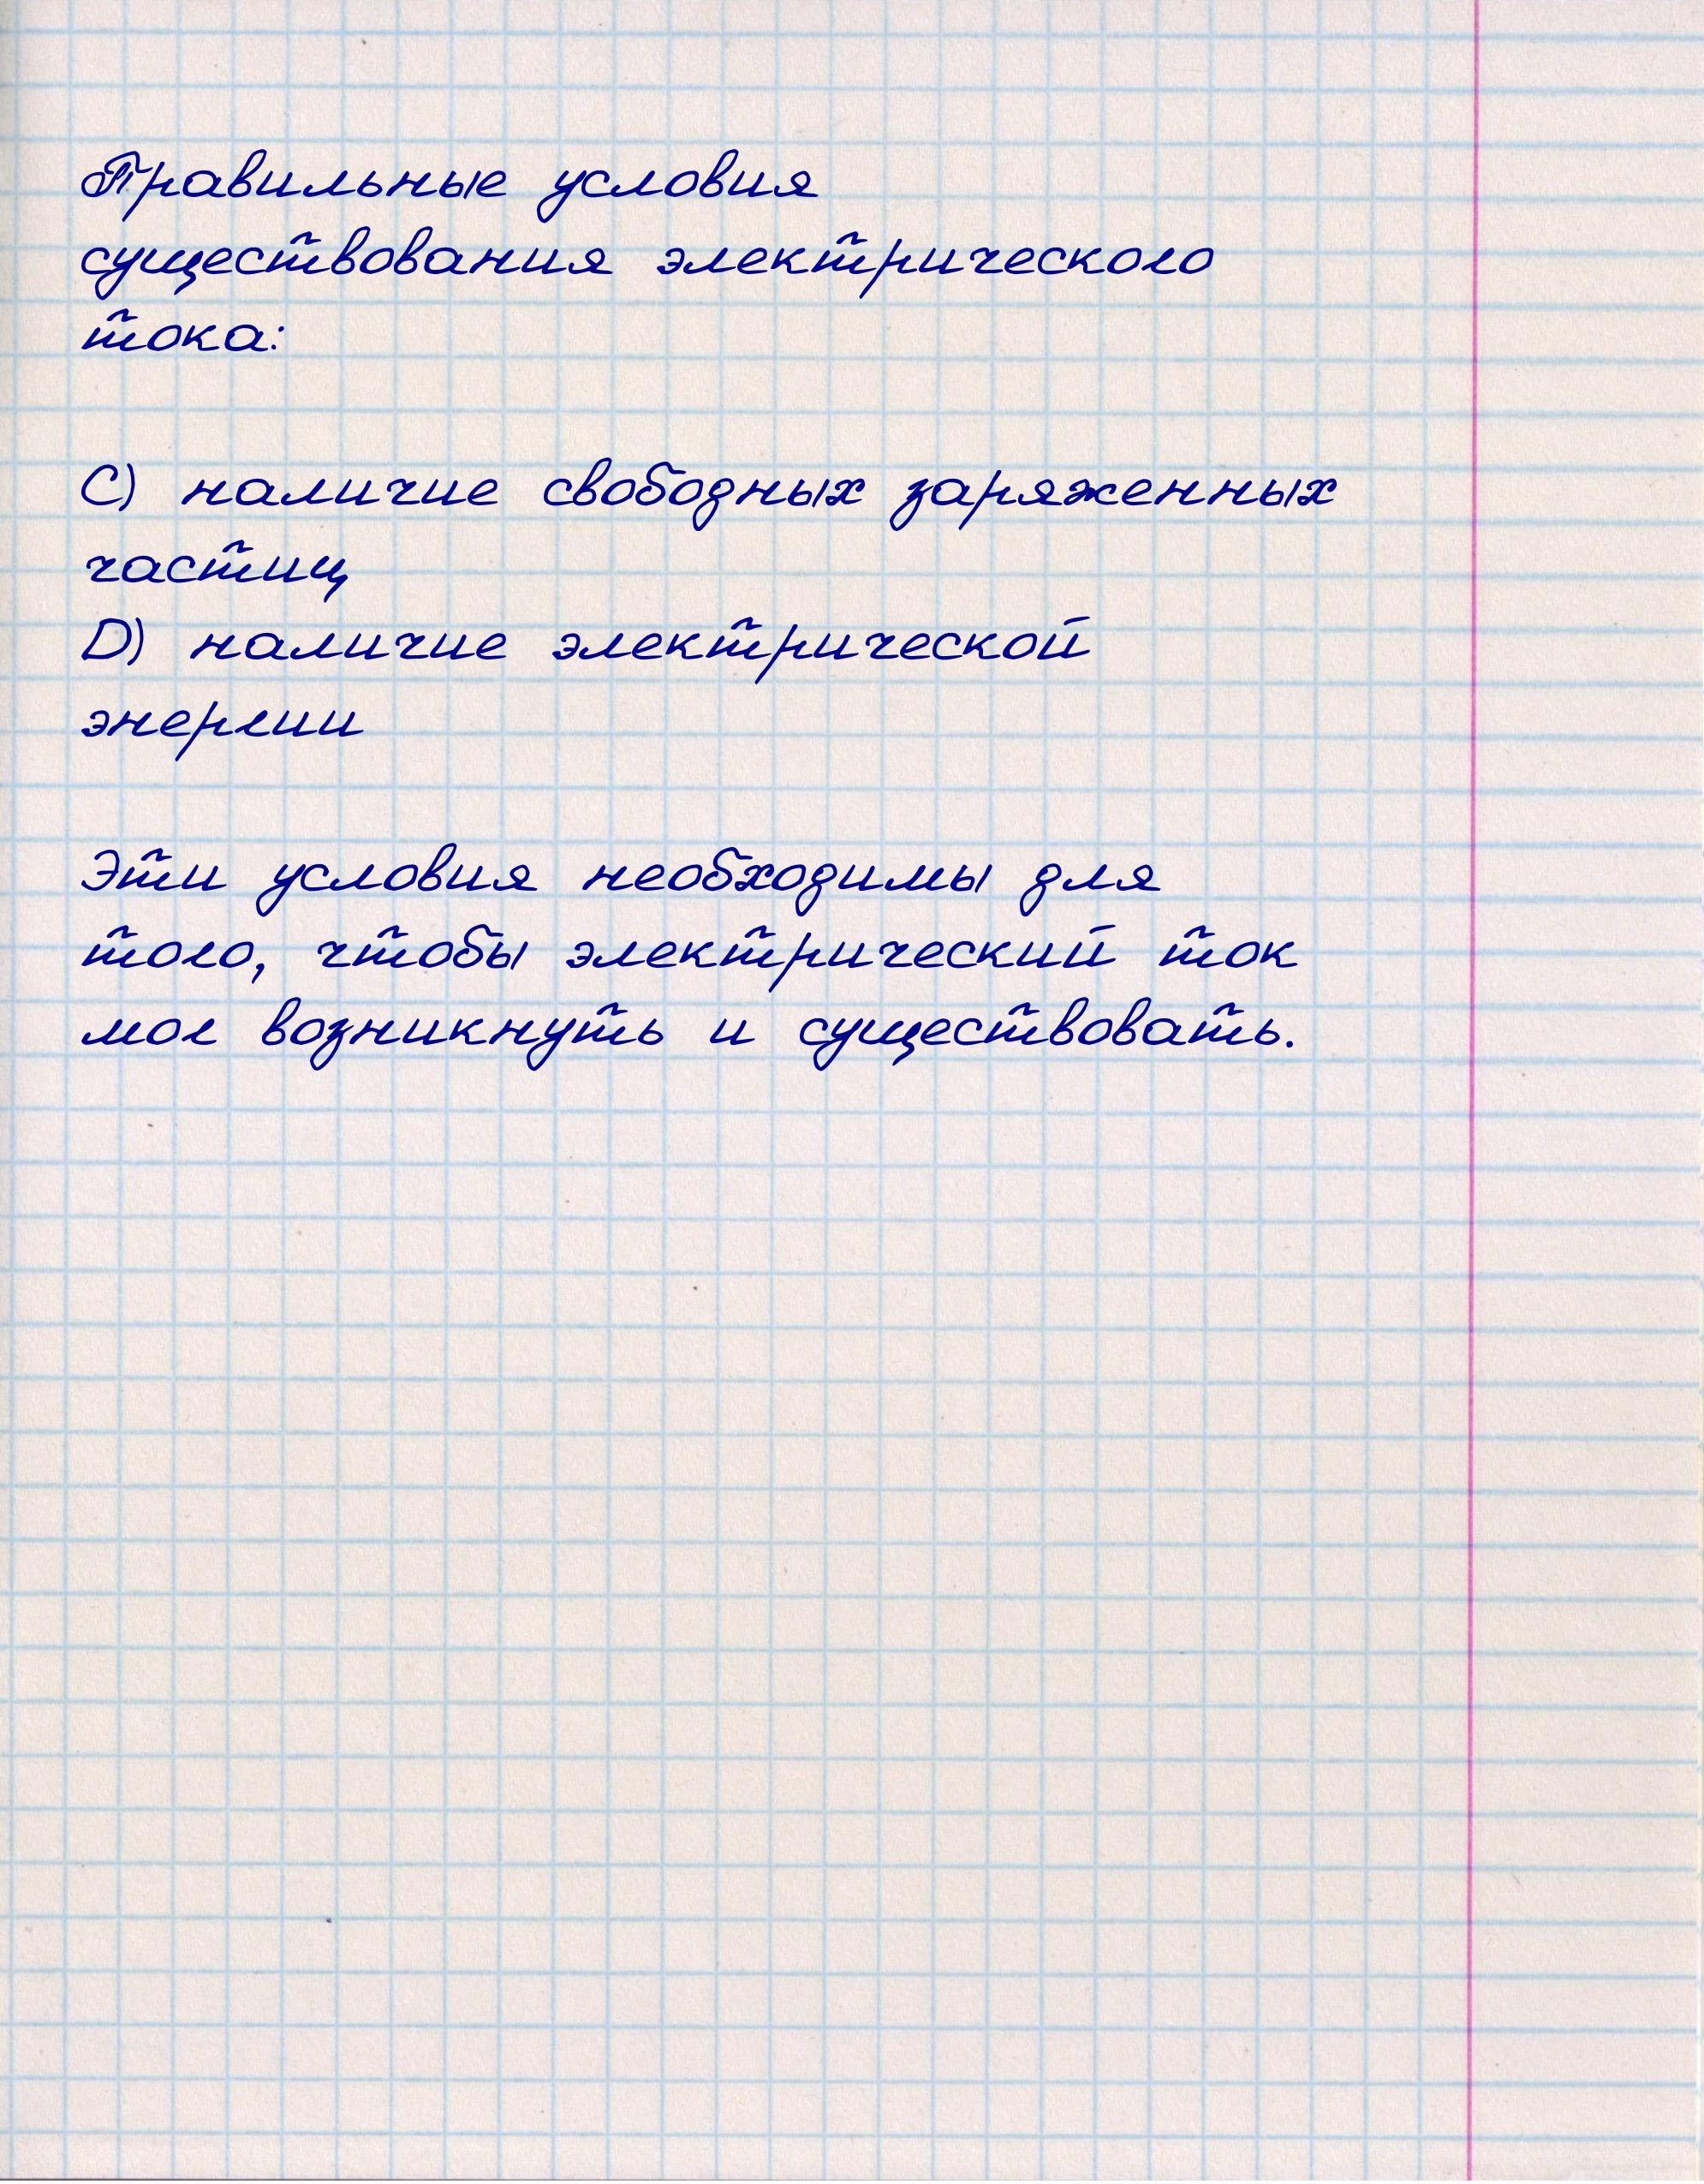 Правильные условия
существования электрического
тока:
C) наличие свободных заряженных
частиц
D) наличие электрической
энергии
Эти условия необходимы для
того, чтобы электрический ток
мог возникнуть и существовать.